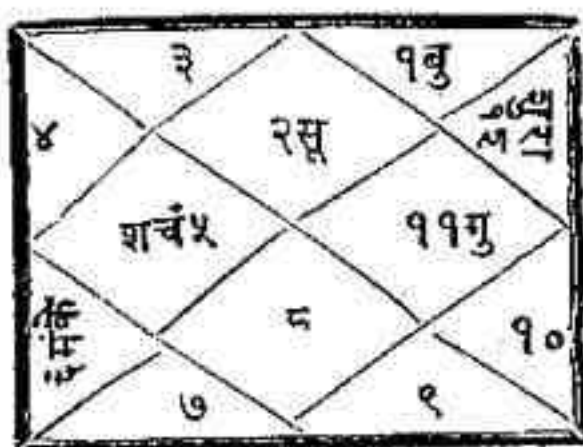 ३
१बु
४
२सू
शुरा
१२
शचं५
११गु
६मंके
८
१०
७
९